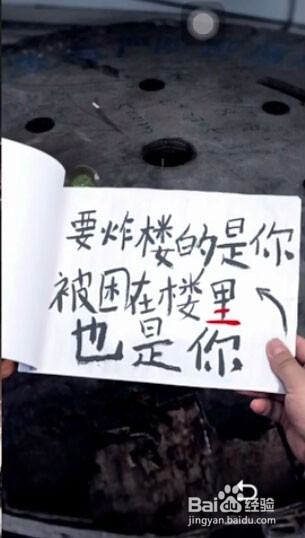 要炸楼的是你
被困在楼里
也是你
Baidu经验
jingyan.baidu.com